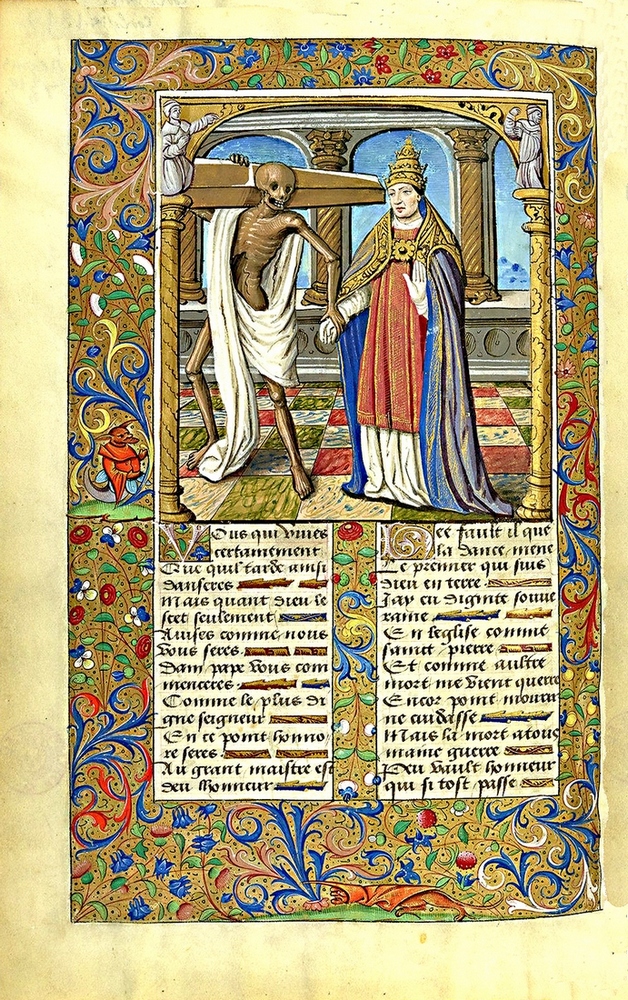 Vous qui viues
certainement
Que quil tarde ainsi
danseres
Mais quant dieu le
scet seulement
Auises comme nous
vous feres
Dam pape vous com
menceres
Comme le plus di
gne seigneur
En ce point honno
re seres
Au grant maistre est
deu lhonneur
Hee fault il que
la dance mene
Le premier qui suis
dieu en terre
Jay eu dignite souue
raine
En leglise comme
sainct pierre
Et comme aultre
mort me vient querre
Encor point mourir
ne cuidasse
Mais la mort a tous
maine guerre
Peu vault honneur
qui si tost passe